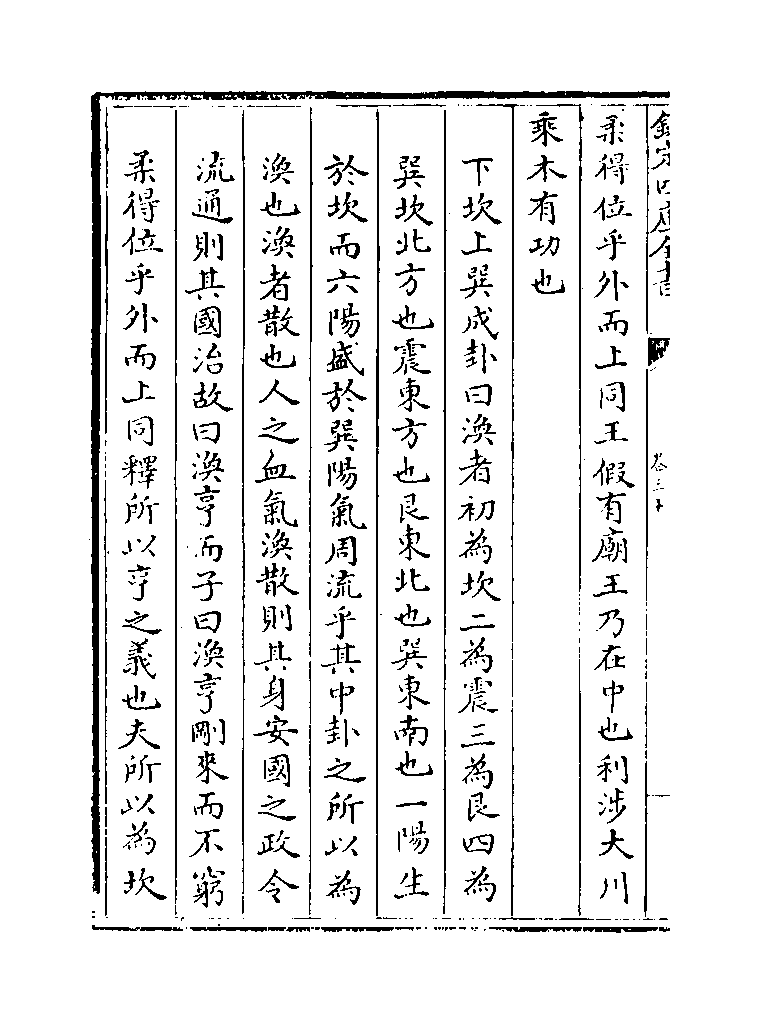 欽定四庫全書
卷三十
柔得位乎外而上同王假有廟王乃在中也利涉大川
乘木有功也
下坎上巽成卦曰渙者初為坎二為震三為艮四為
巽坎北方也震東方也艮東北也巽東南也一陽生
於坎而六陽盛於巽陽氣周流乎其中卦之所以為
渙也渙者散也人之血氣渙散則其身安國之政令
流通則其國治故曰渙亨而子曰渙亨剛來而不窮
柔得位乎外而上同釋所以亨之義也夫所以為坎